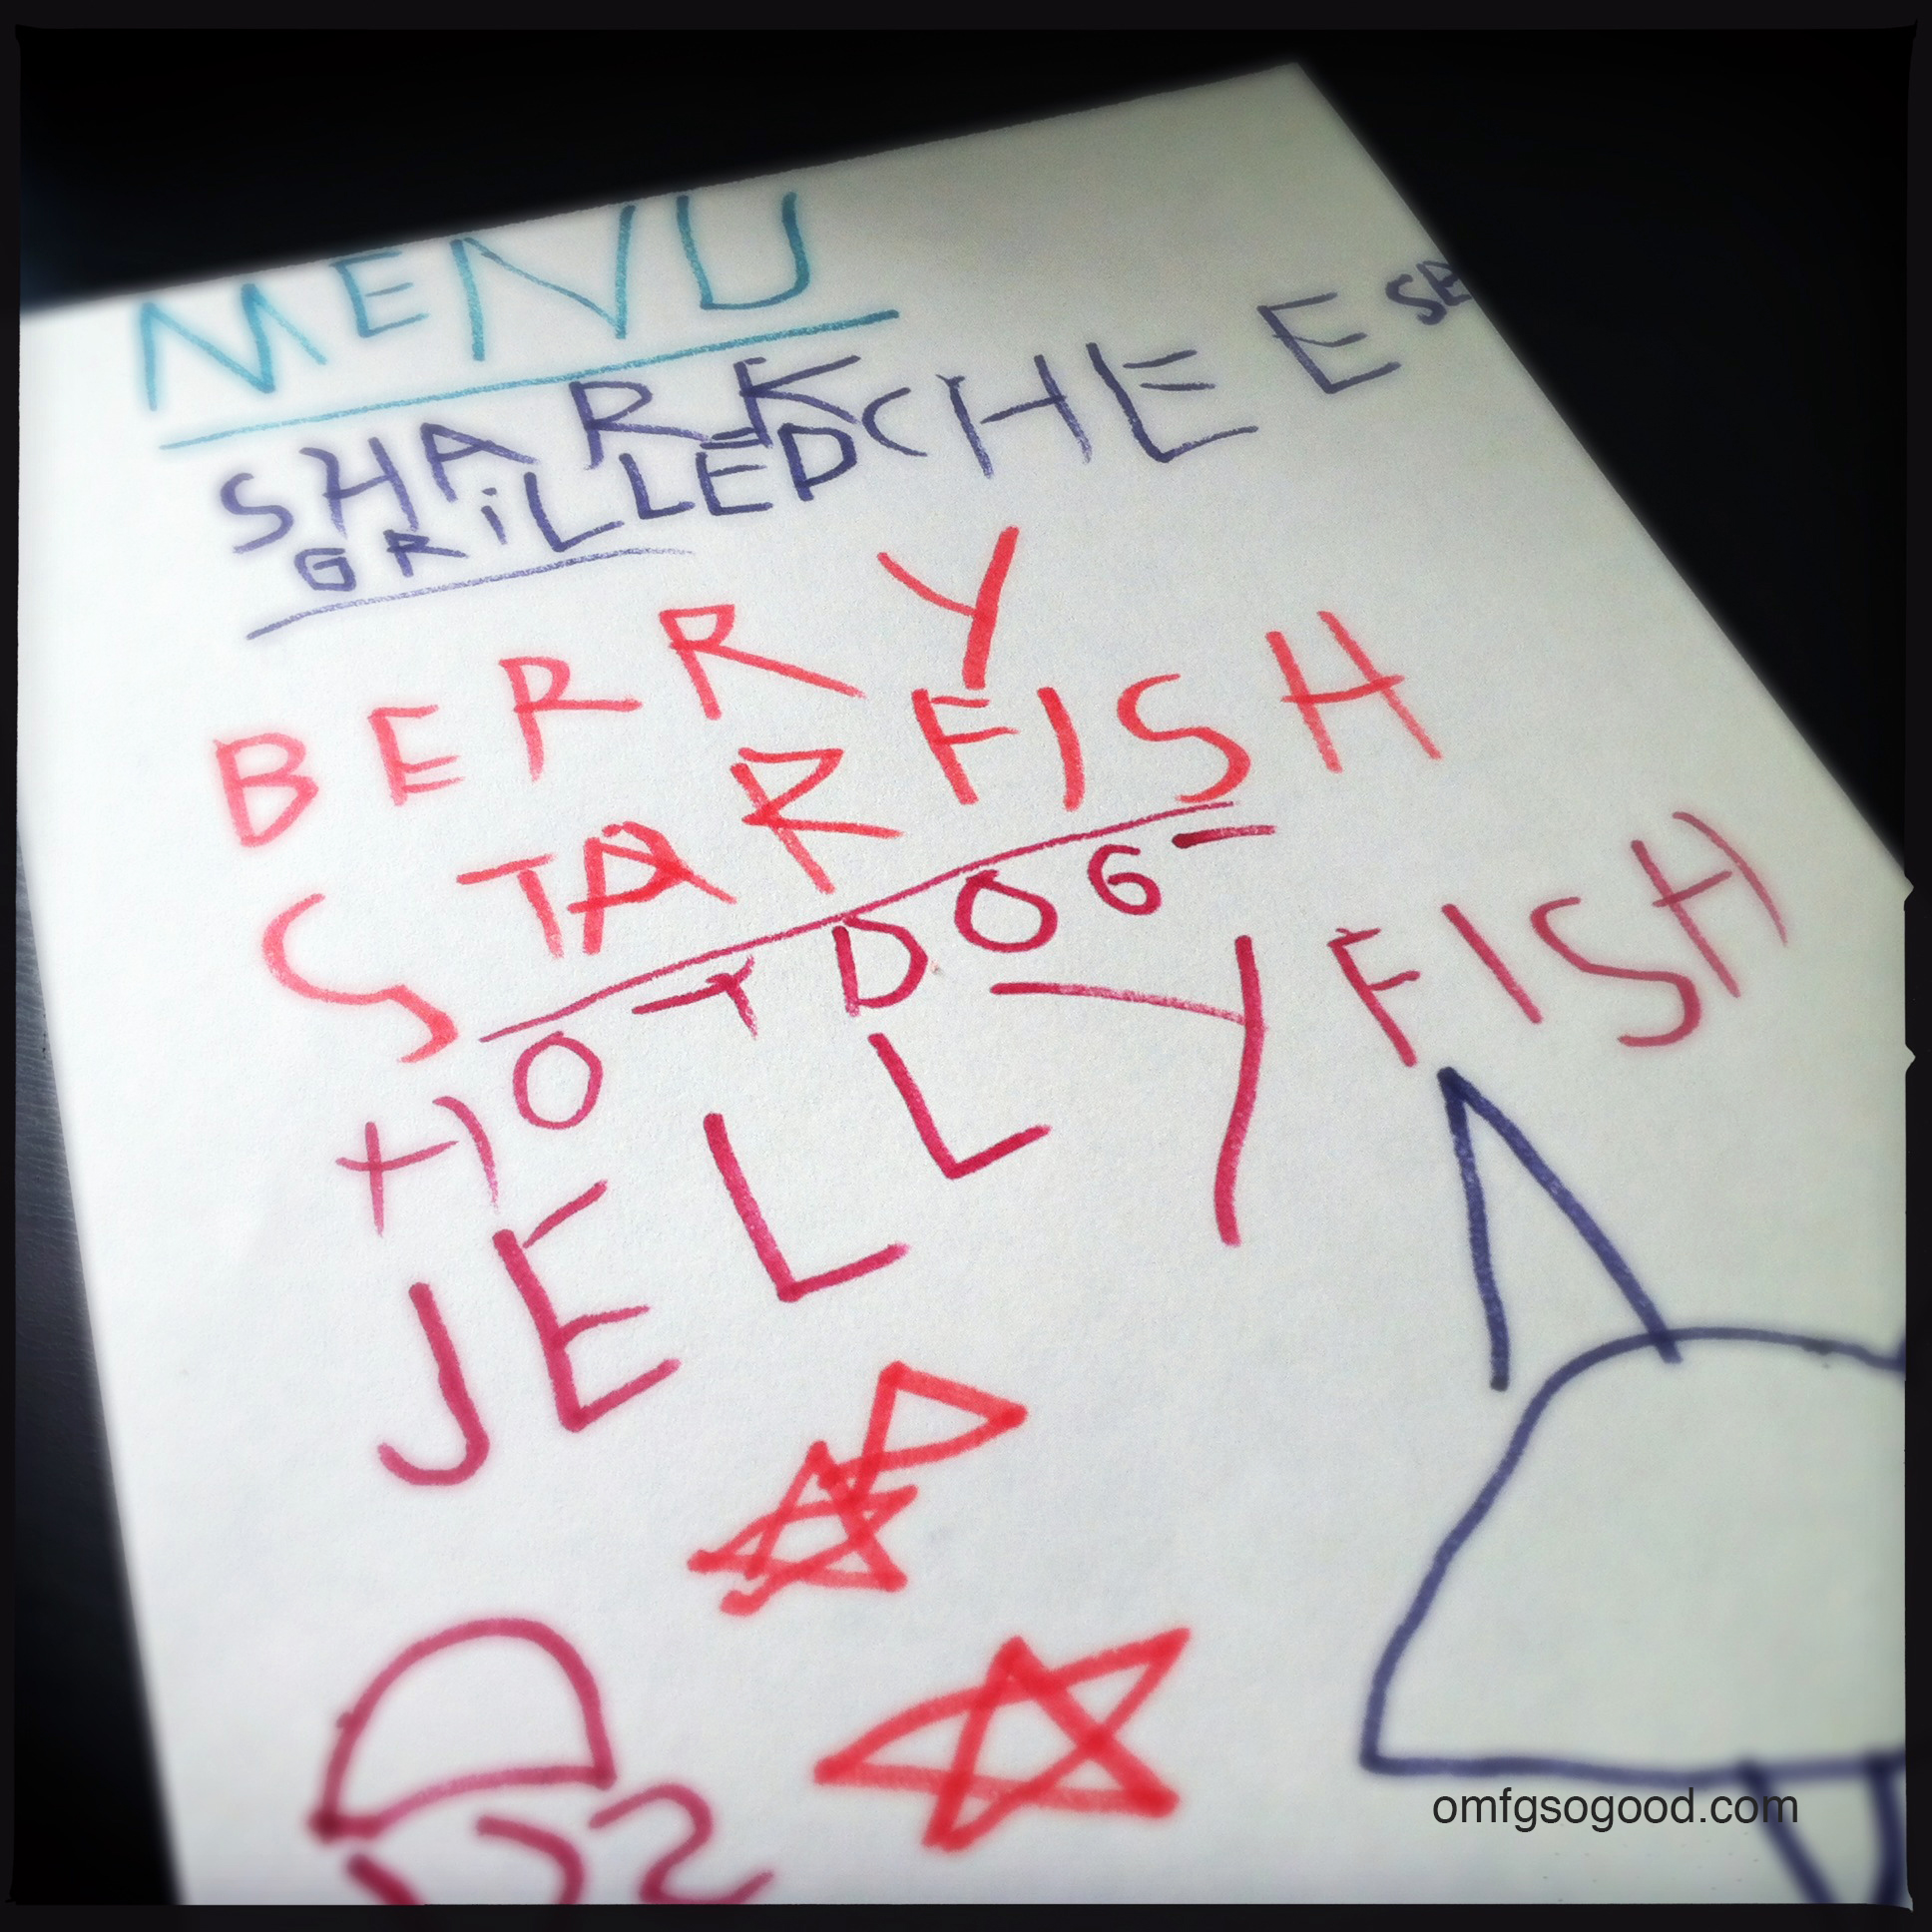 MENU
SHARK
GRiLLED CHEESE
BERRY
STARFISH
HOT DOG
JELLYFISH
omfgsogood.com